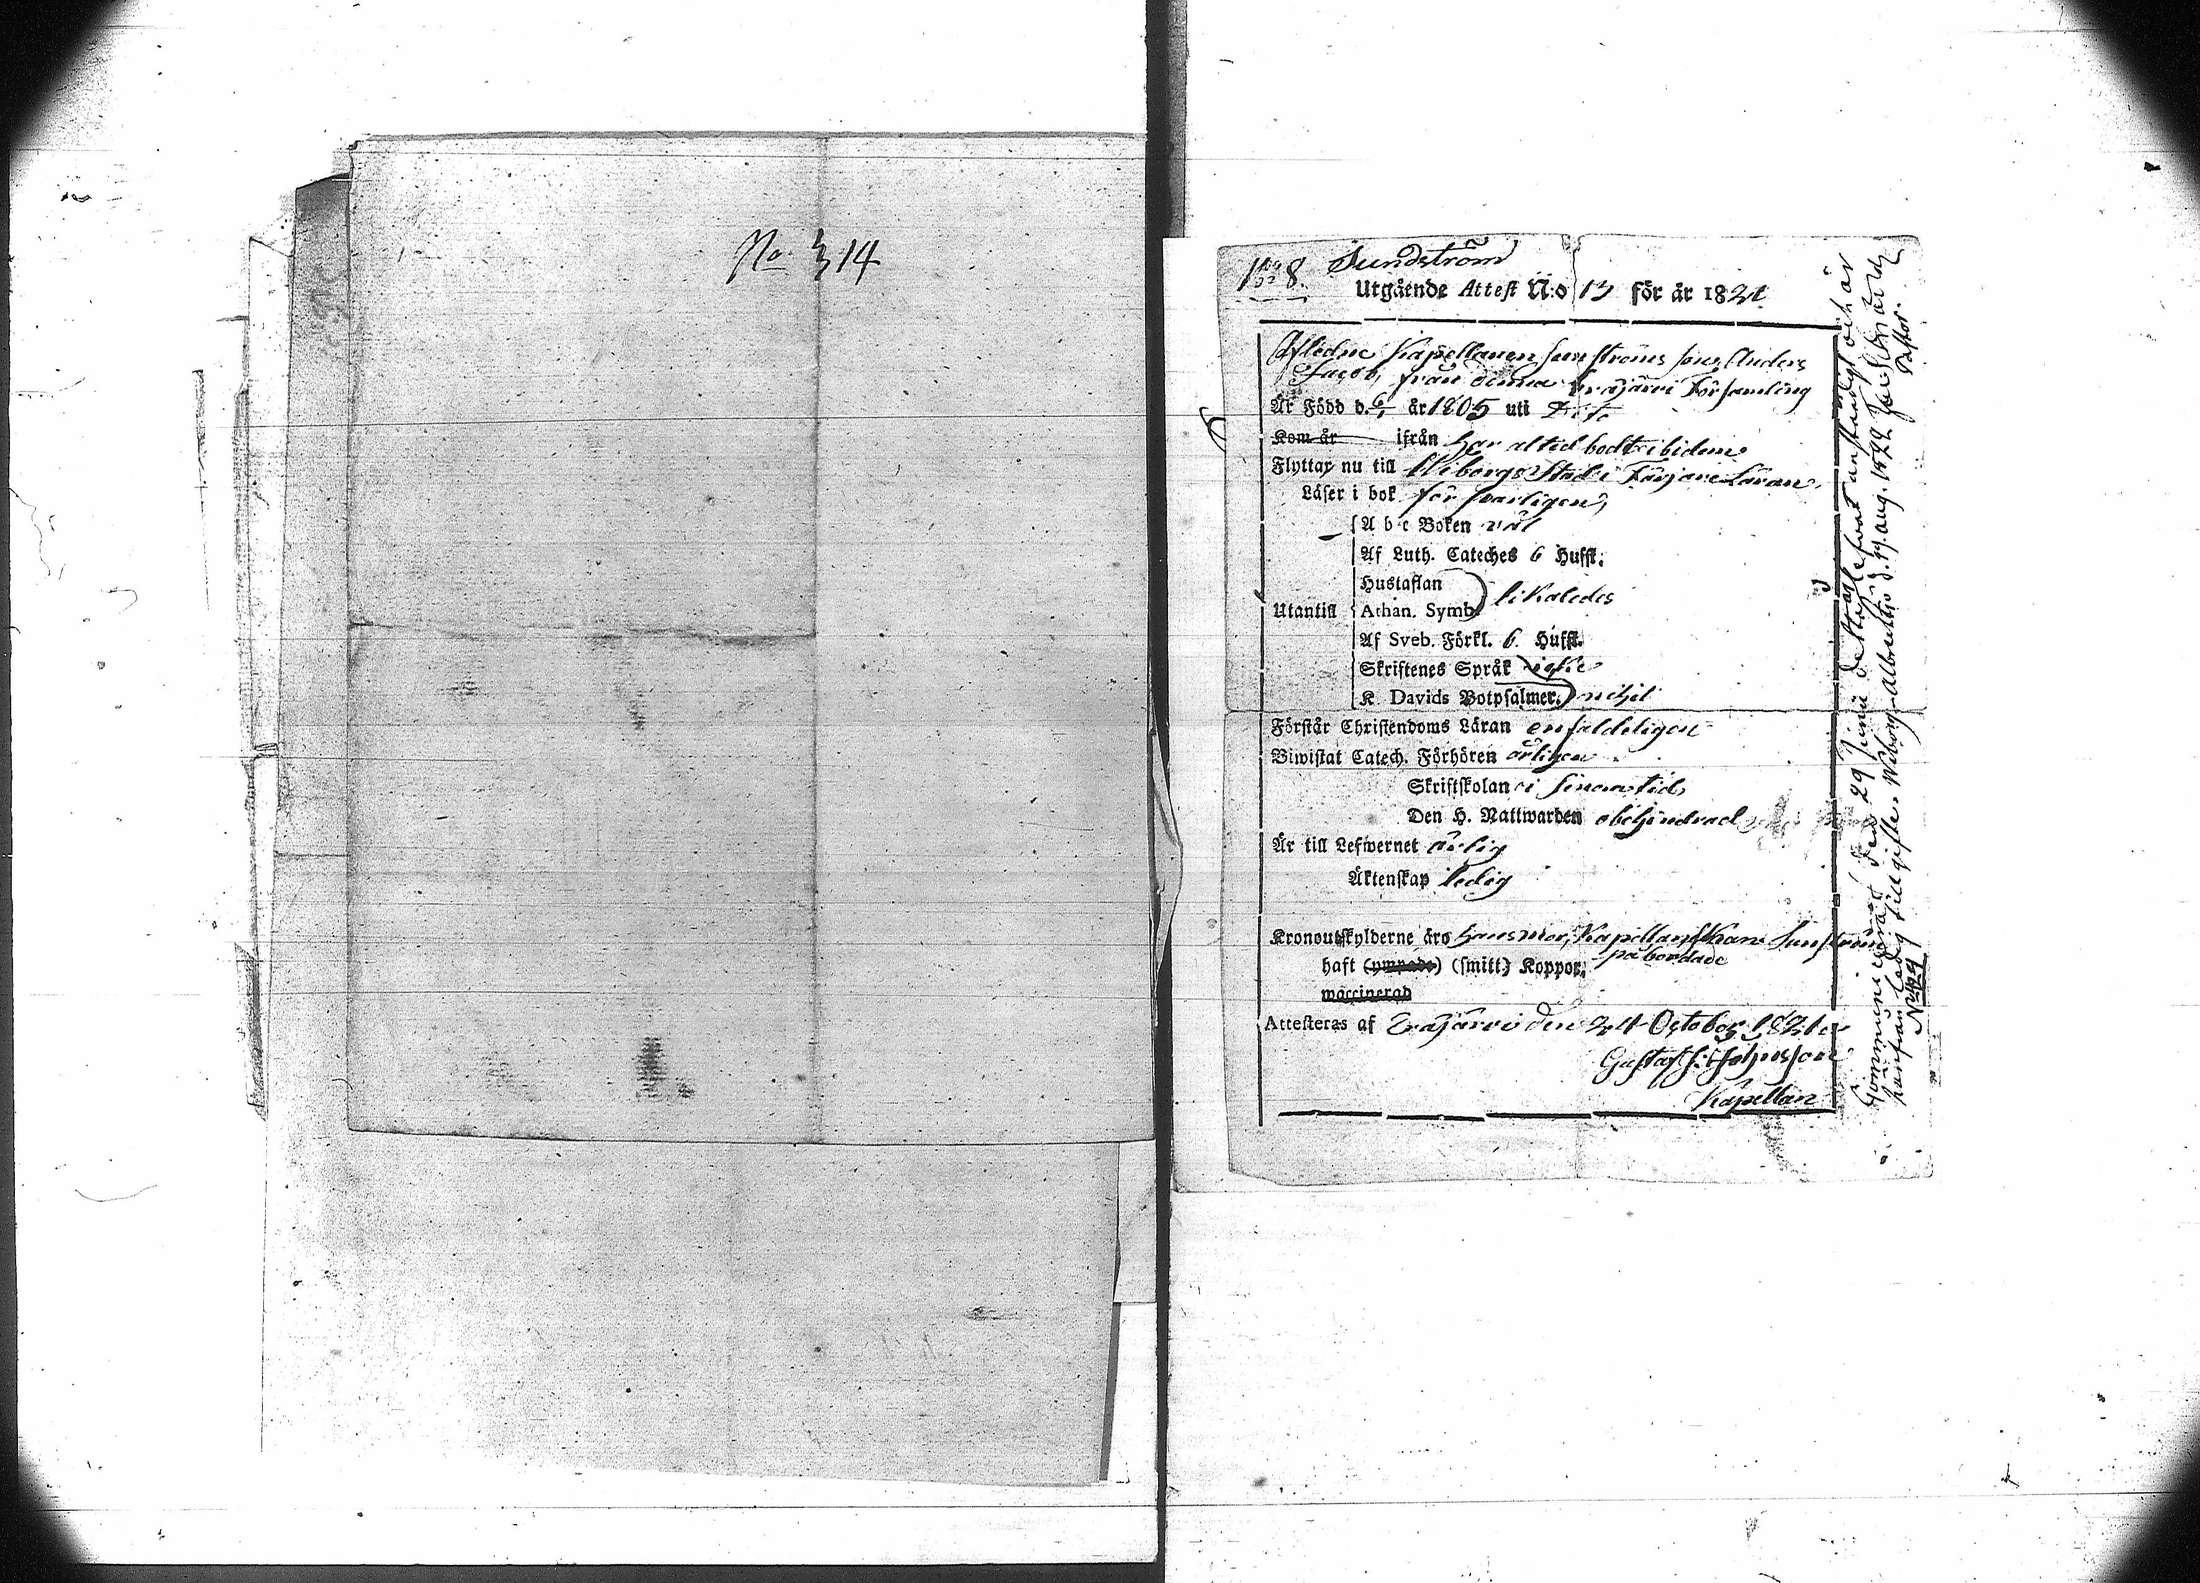 No. 314
Sundström
8.
Utgående Attest N:o 13 för år 1821
Afledne Kapellanen Sunströms son, Anders
Jacob, från denna Eräjärvi Församling
Är Född d. år 1805 uti
Kom år ifrån har altid bodt ibidem
Flyttar nu till Wiborgs Stad i Färjare Läran,
Läser i bok försvarligen,
A b c Boken väl
Af Luth. Cateches 6 Hufst.
Hustaflan
likaledes
Utantill Athan. Symb.
Af Sveb. Förkl. 6 Hufst.
Skriftenes Språk icke
K. Davids Botpsalmer. nihil
Förstår Christendoms Läran enfaldeligen
Biwistat Catech. Förhören årligen
Skriftskolan i sinom tid
Den H. Nattwarden obehindrad
Är till Lefwernet ärlig
Äktenskap ledig
Kronoutskylderne äro hans mor, Kapellans Sunström
påbördade
haft (ympade) (smitt) Koppor,
waccinerad
Attesteras af Eräjärvi den 24 October 1821
Gustaf Johansson
Kapellan
Communicerat den 29 Junii detta år, lefvat anständigt och är
härifrån ledig till gifte. Wiborg d. 17 aug. 1822
Pastor.